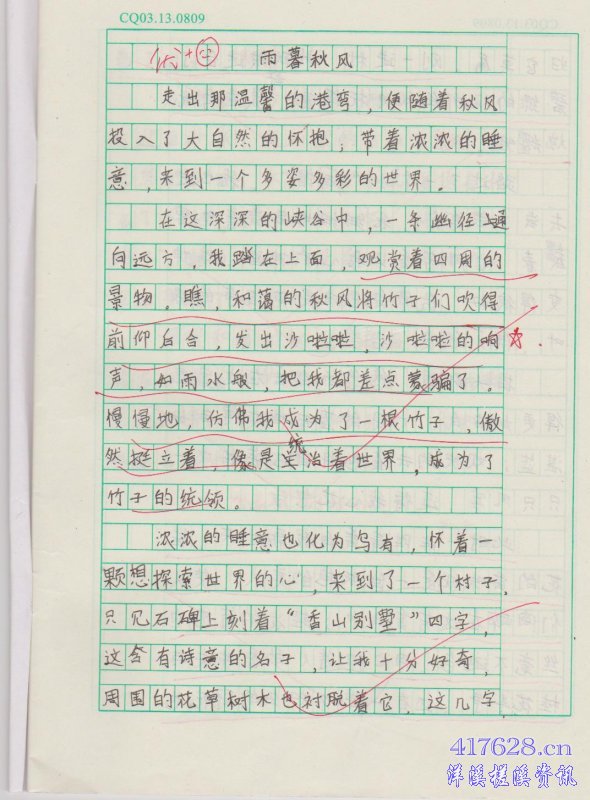 CQ03.13.0809
优+
雨暮秋风
走出那温馨的港弯，便随着秋风
投入了大自然的怀抱；带着浓浓的睡
意，来到一个多姿多彩的世界。
在这深深的峡谷中，一条幽径通
向远方，我踏在上面，观赏着四周的
景物。瞧，和蔼的秋风将竹子们吹得
前仰白合，发出沙啦啦，沙啦啦的响
声，如雨水般，把我都差点蒙骗了。
慢慢地，仿佛我成为了一根竹子，傲
然挺立着，像是统治着世界，成为了
竹子的统领。
浓浓的睡意也化为乌有，怀着一
颗想探索世界的心，来到了一个村子，
只见石碑上刻着“香山别墅”四字，
这含有诗意的名子，让我十分好奇，
周围的花草树木也衬脱着它，这几字
417628.cn
洋溪槎溪资讯